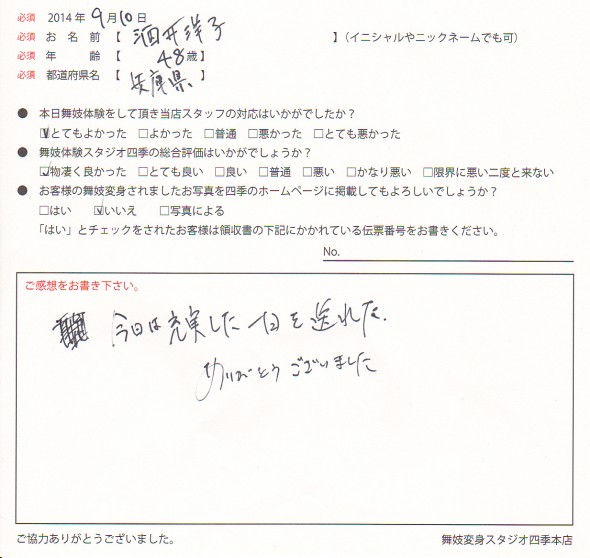 必須 2014年 9月10日
必須 お名前【 酒井洋子 】(イニシャルやニックネームでも可)
必須 年齢【 48歳】
必須 都道府県名【 兵庫県 】
● 本日舞妓体験をして頂き当店スタッフの対応はいかがでしたか?
☑とてもよかった □よかった □普通 □悪かった □とても悪かった
● 舞妓体験スタジオ四季の総合評価はいかがでしょうか?
☑物凄く良かった □とても良い □良い □普通 □悪い □かなり悪い □限界に悪い二度と来ない
● お客様の舞妓変身されましたお写真を四季のホームページに掲載してもよろしいでしょうか?
□はい ☑いいえ □写真による
「はい」とチェックをされたお客様は領収書の下記にかかれている伝票番号をお書きください。
No.
ご感想をお書き下さい。
今日は充実した一日を送れた.
ありがとうございました
ご協力ありがとうございました。 舞妓変身スタジオ四季本店